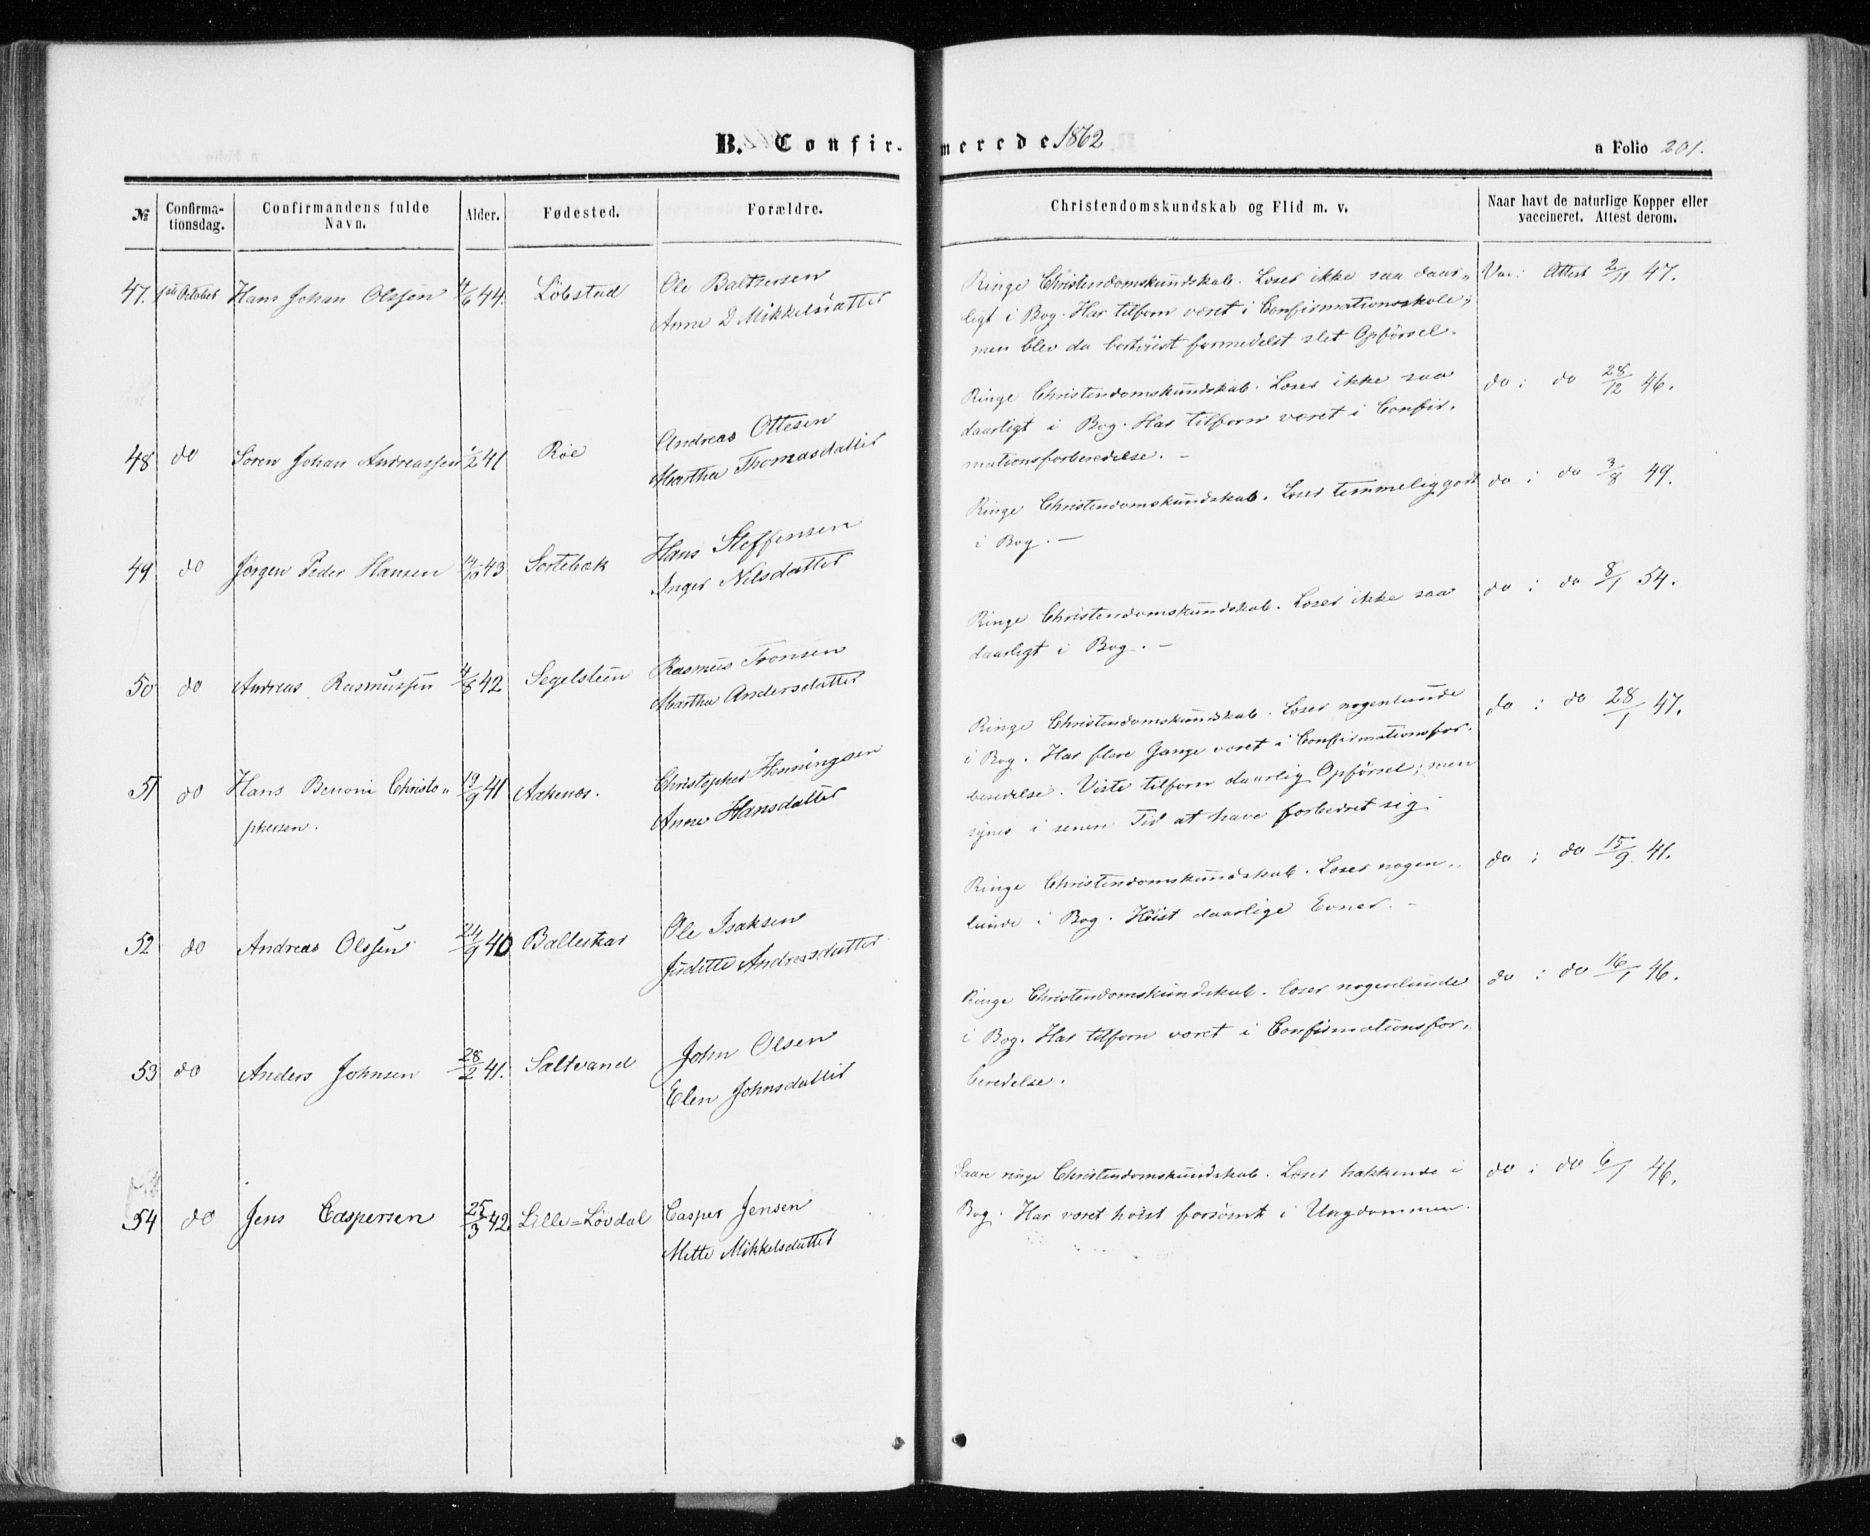 B. Confirmerede 1862
a Folio 201.
№ Confirmationsdag. Confirmandens fulde Navn. Alder. Fødested. Forældre. Christendomskundskab og Flid m. v. Naar havt de naturlige Kopper eller vaccineret. Attest derom.
47. October Hans Johan Olssen 4/6 44. Løbstad
Ole Baltzersen
Anne D Mikkelsdatter
Ringe Christendomskundskab. Læser ikke saa daar„
ligt i Bog. Har tilforn været i Confirmationsskole;
men blev da bortviist formedelst slet Opførsel.
Vac: Attest 2/11 47.
48 do Søren Johan Andreassen /2 41 Røe
Andreas Ottesen
Martha Thomasdatter
Ringe Christendomskundskab. Læser ikke saa
daarligt i Bog. Har tilforn været i Confir„
mationsforberedelse. –
do : do 28/12 46.
49 do Jørgen Peder Hansen 14/10 43 Sortebæk
Hans Steffensen
Inger Nilsdatter
Ringe Christendomskundskab. Læser temmelig godt
i Bog. –
do : do 3/8 49.
50 do Andreas Rasmussen 4/8 42 Segelsteen
Rasmus Tronsen
Martha Andersdatter
Ringe Christendomskundskab. Læser ikke saa
daarligt i Bog. –
do : do 8/1 54.
51 do Hans Benoni Christo„
phersen. 19/9 41 Aakenæs.
Christopher Henningsen
Anne Hansdatter
Ringe Christendomskundskab. Læser nogenlunde
i Bog. Har flere Gange været i Confirmationsfor„
beredelse. Viste tilforn daarlig Opførsel; men
synes i senere Tid at have forbedret sig.
do : do 28/1 47.
52 do Andreas Olssen 24/9 40 Balleskar
Ole Isaksen
Juditte Andreasdatter
Ringe Christendomskundskab. Læser nogen„
lunde i Bog. Høist daarlige Evner. –
do : do 15/9 41.
53 do Anders Johnsen 28/2 41. Saltvand
John Olsen
Elen Johnsdatter
Ringe Christendomskundskab. læser nogenlunde
i Bog. Har tilforn været i Confirmationsfor„
beredelse.
do : do 16/1 46.
54 do Jens Caspersen 25/3 42. Lille=Løvdal
Casper Jensen
Mette Mikkelsdatter
Saare ringe Christendomskundskab. Læser hakkende i
Bog. Har været høist forsømt i Ungdommen.
do : do 6/1 46.